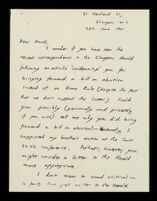 Glasgow W.2.
28th June 1965
Dear David,
I wonder if you have seen the
recent correspondence in the Glasgow Herald
following an article "condemning" you for
bringing forward a bill on abortion
instead of on Home Rule (despite the fact
that we don't support the latter). Could
you possibly (personally and privately,
if you will) tell me why you did bring
forward a bill on abortion? Naturally, I
supported my brother's motion at the last
conference. Perhaps, however, you
might consider a letter to the Herald
more appropriate.
I don't mean to sound critical —
in fact, I've just written to the Herald